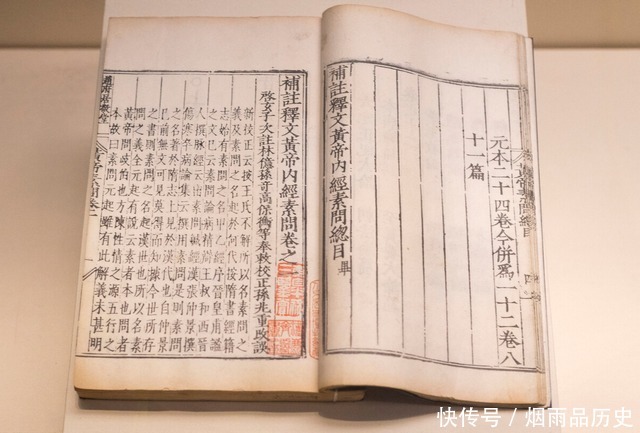 元本二十四卷今併爲一十二卷八
十一篇
補註釋文黃帝內經素問總目 畢
補註釋文黃帝內經素問卷之
啓玄子次註林億孫奇高保衡等奉敕校正孫兆重改誤
新校正云按王氏不解所以名素問之
義及素問之名起於何代按隋書經籍
志始有素問之名甲乙經序晉皇甫謐
之文已云素問論病精辨王叔和西晉
人撰脈經云出素問鍼經漢張仲景撰
傷寒卒病論集云撰用素問是則素問
之名著於隋志上見於漢代也自仲景
已前無文可見莫得而知據今世所存
之書則素問之名起漢世也所以名素
問之義全元起有說云素者本也問者
黃帝問岐伯也方陳性情之源五行之
本故曰素問元起雖有此解義未甚明
快传号 / 烟雨品历史